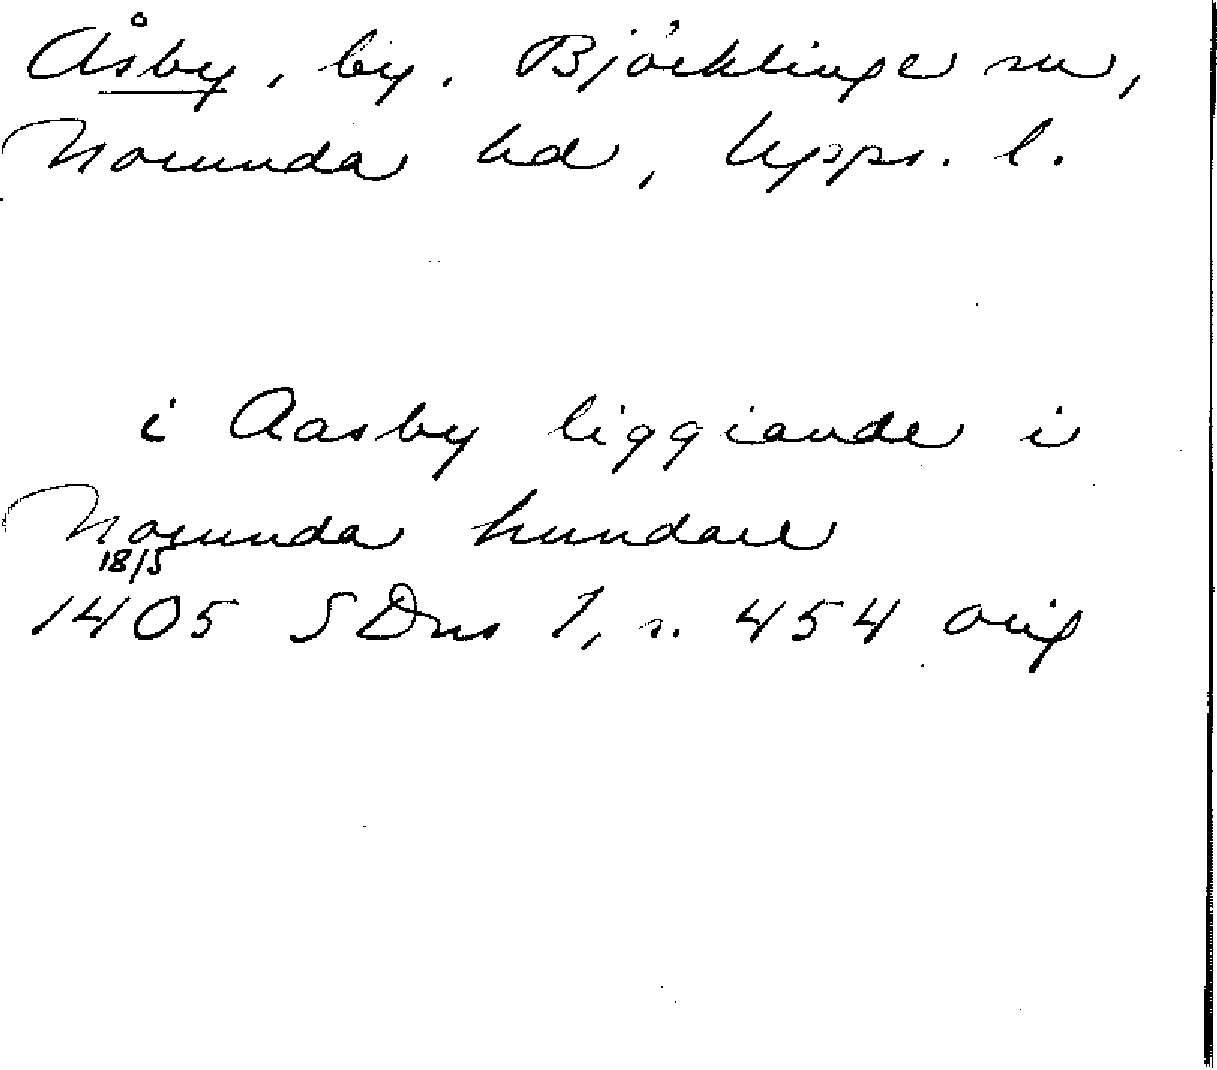 Åsby, by. Björklinge sn,
Norunda hd, Upps. l.
i Aasby liggiande i
Norunda hundare
18/5
1405 SDns 1, s. 454 orig